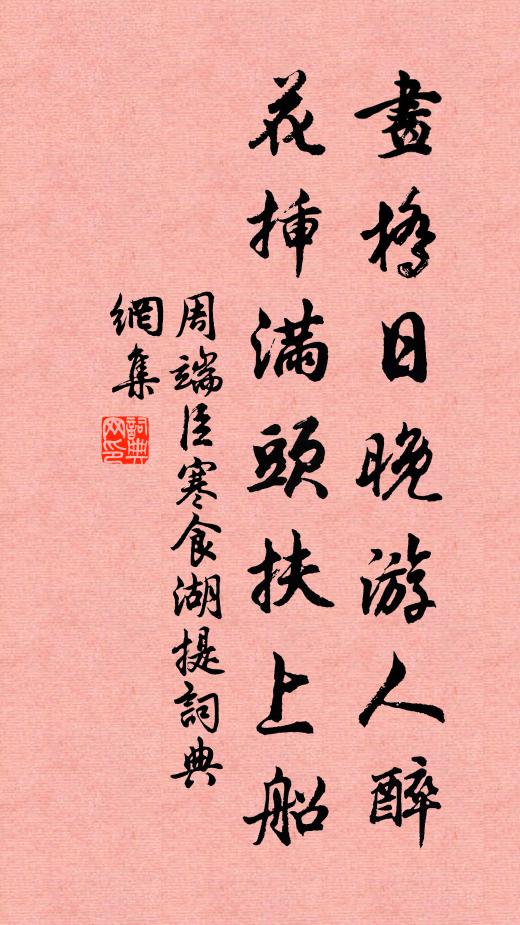 畫橋日晚游人醉
花插滿頭扶上船
周端臣寒食湖堤詞典
網集
詞典網印